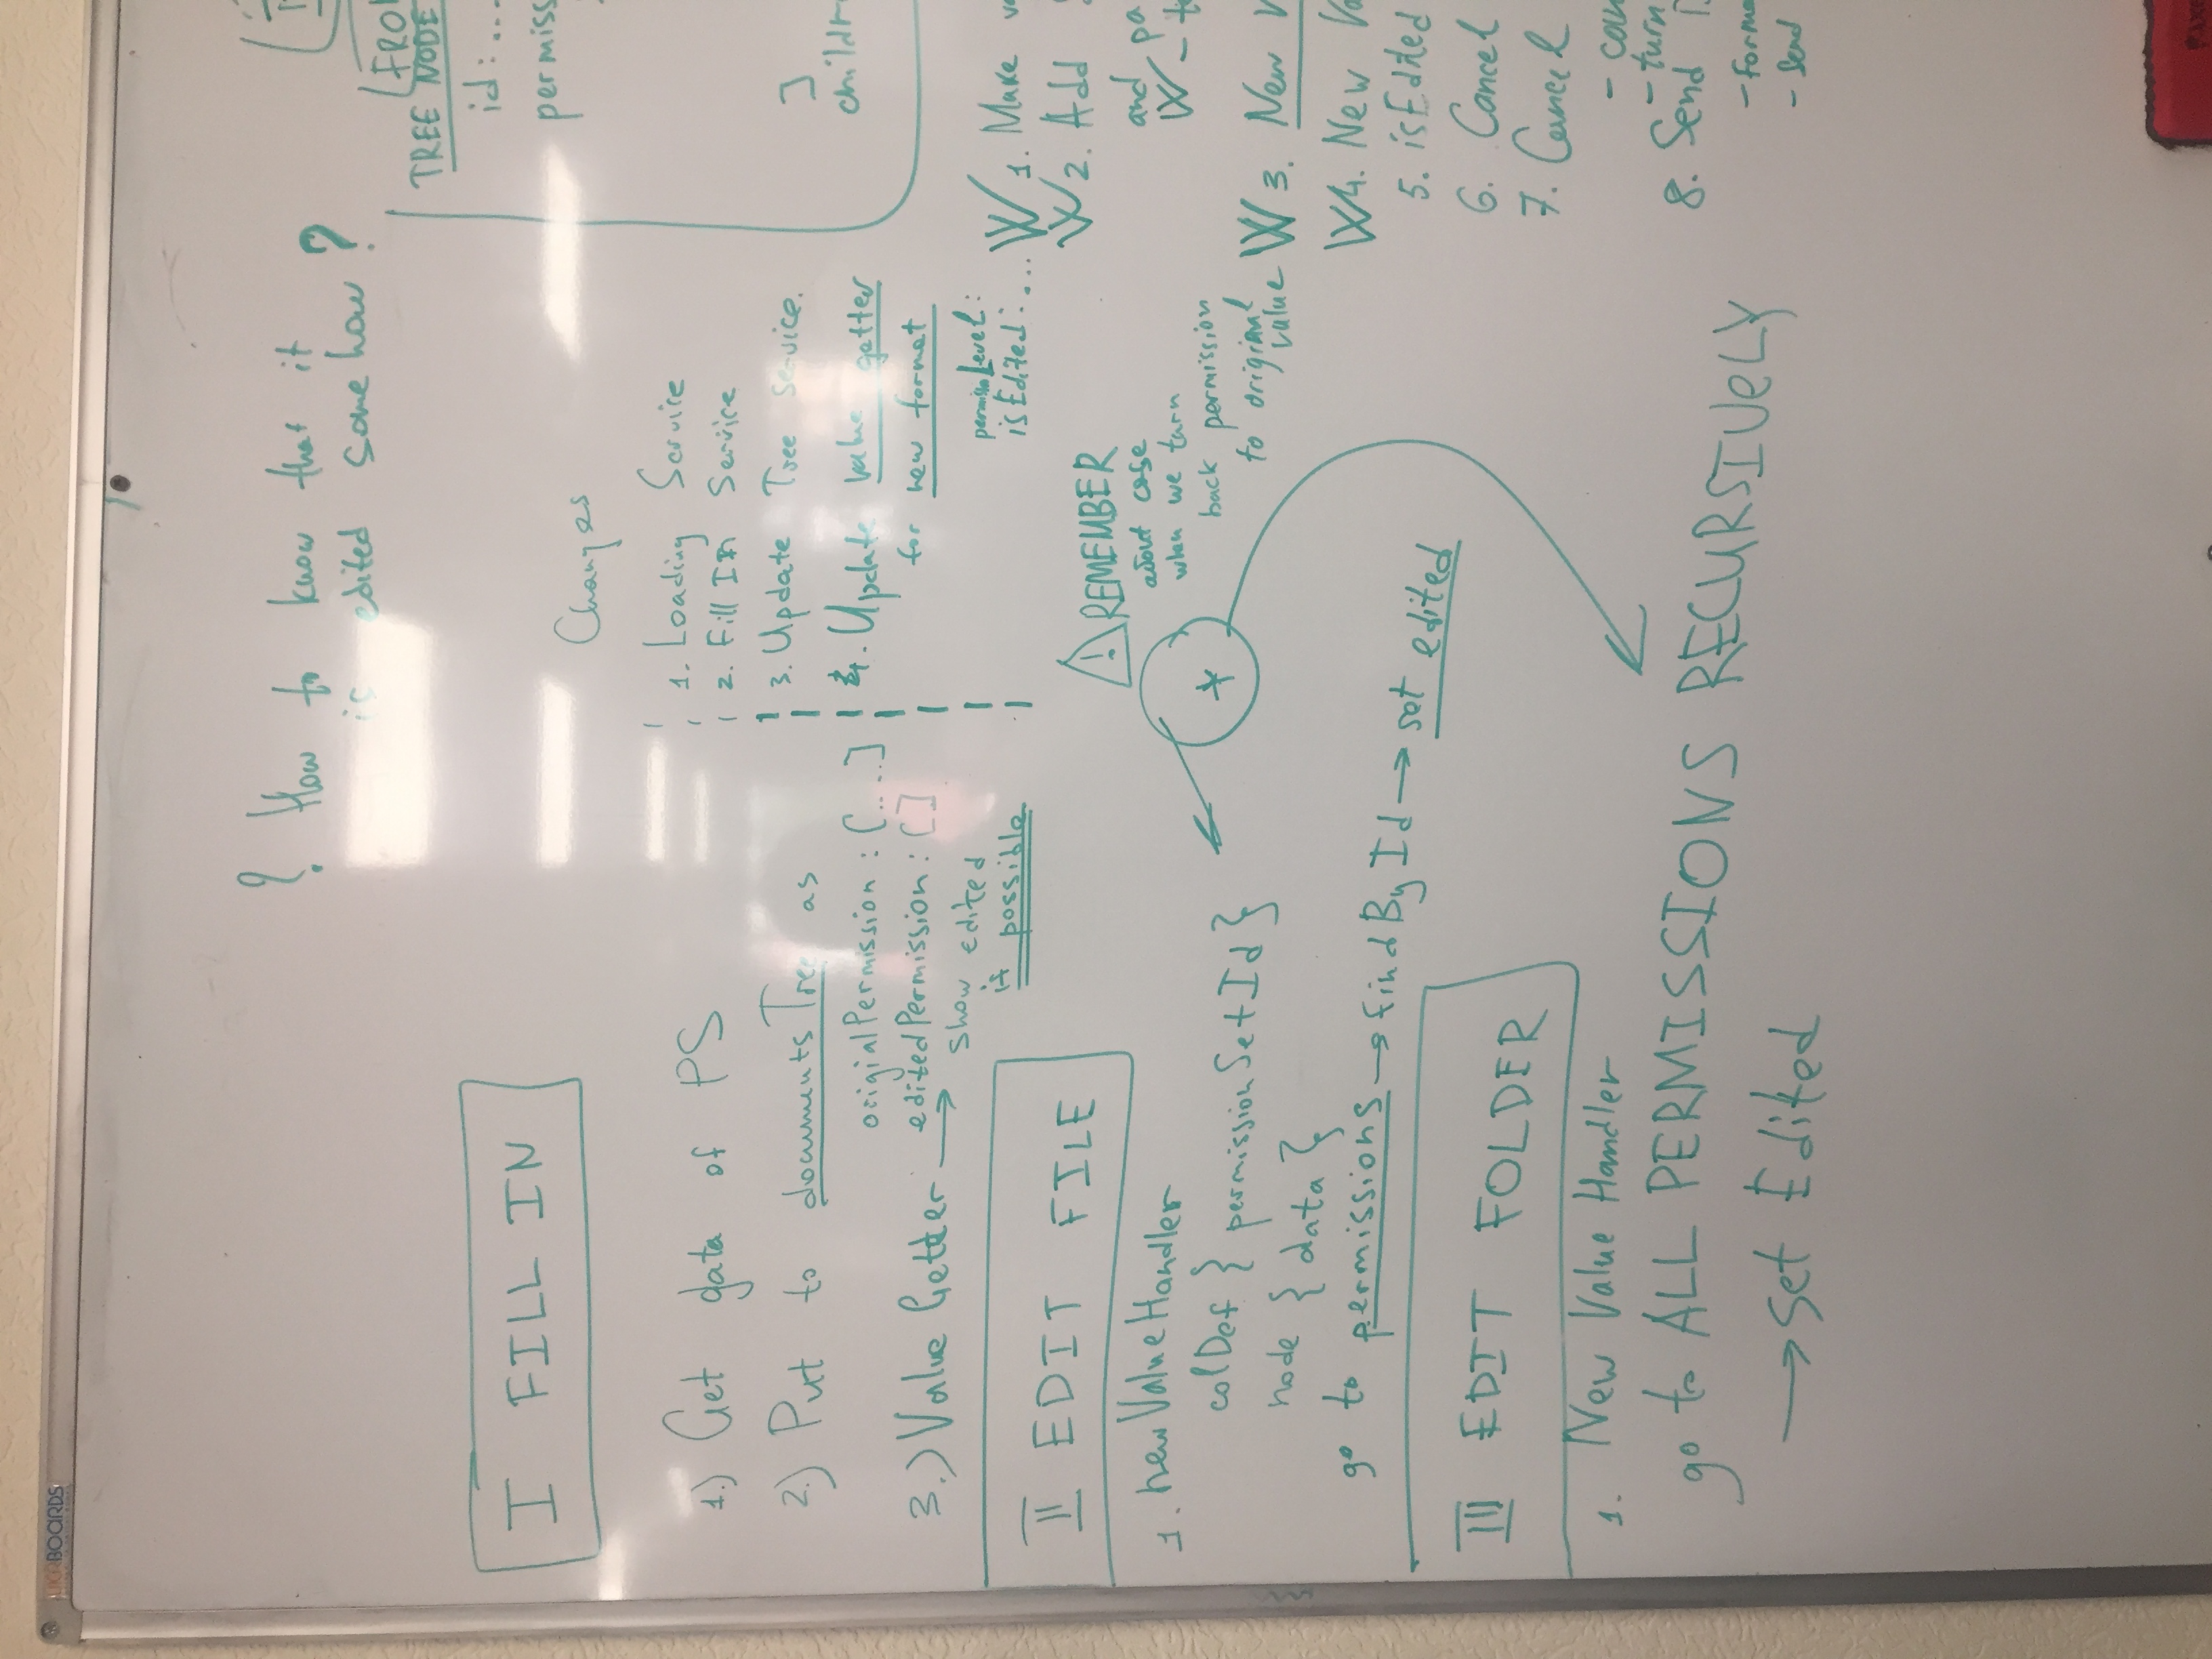 UKRBOARDS
? How to know that it
is edited some how ?
I FILL IN
1.) Get data of PS
2.) Put to documentsTree as
origialPermission : [....]
editedPermission : [ ]
3.) Value Getter →
show edited
if possible
Changes
1. Loading Service
2. Fill In Service
3. Update Tree Service.
4. Update value getter
for new format
permissionLevel:
isEdited: ...
II EDIT FILE
1. newValueHandler
colDef { permissionSetId }
node { data }
go to permissions → findById → set edited
⚠ REMEMBER
about case
when we turn
back permission
to original
value
*
III EDIT FOLDER
1. New Value Handler
go to ALL PERMISSIONS RECURSIVELY
→ set Edited
TREE NODE
id: ...
permiss
]
childr
W 1. Make
W 2. Add
and pa
W -
W 3. New V
W 4. New Va
5. isEdited
6. Cancel
7. Cancel
- cou
- turn
8. Send
- forma
- Send